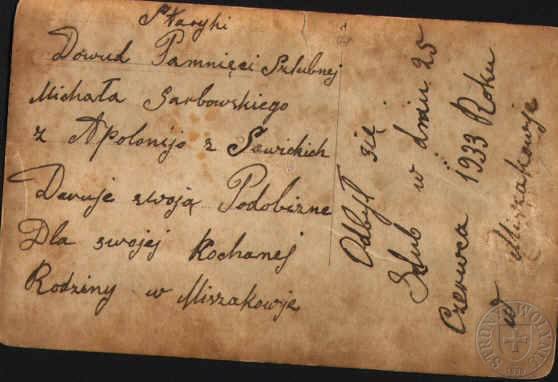 Staryki
Dowud Pamnięci Szlubnej
Michała Sarbowskiego
z Apolonijo z Sawickich
Daruje swoją Podobizne
Dla swojej Kochanej
Rodziny w Miszakowje
Odbył się
Szlub w dniu 25
Czerwca 1933 Roku
w Miszakowje
STRONY WOŁYNIA